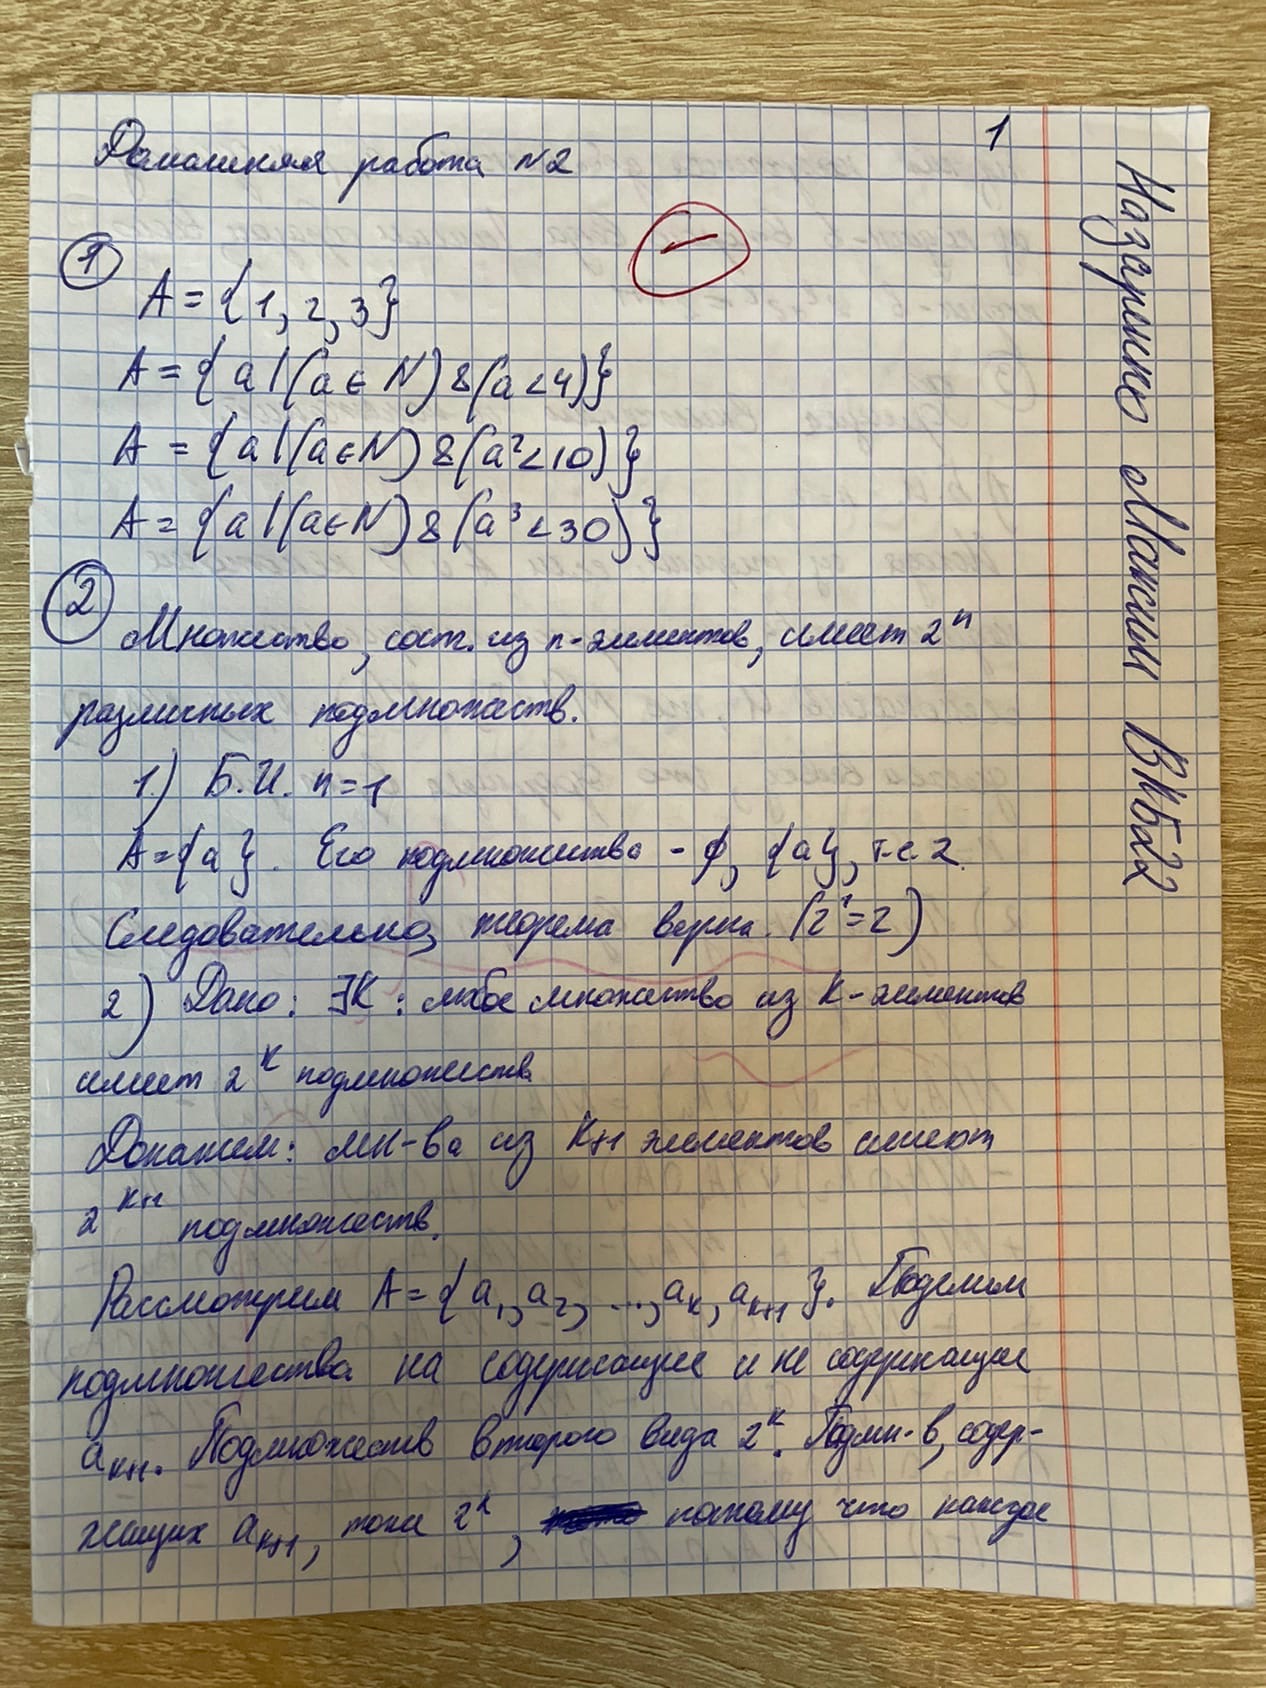 Домашняя работа №2
1
Назаренко Максим ВКБ22
1
A = {1, 2, 3}
A = {a|(a∈N)&(a<4)}
A = {a|(a∈N)&(a²<10)}
A = {a|(a∈N)&(a³<30)}
2
Множество, сост. из n-элементов, имеет 2ⁿ
различных подмножеств.
1.) Б.И. n=1
A={a}. Его подмножества - ∅, {a}, т.е. 2.
Следовательно, теорема верна. (2¹=2)
2) Дано: ∃K: любое множество из K-элементов
имеет 2ᴷ подмножеств
Докажем: мн-ва из K+1 элементов имеют
2ᴷ⁺¹ подмножеств.
Рассмотрим A={a₁, a₂, ..., aₖ, aₖ₊₁}. Поделим
подмножества на содержащие и не содержащие
aₖ₊₁. Подмножеств второго вида 2ᴷ. Подмн-в, содер-
жащих aₖ₊₁, тоже 2ᴷ, потому что каждое